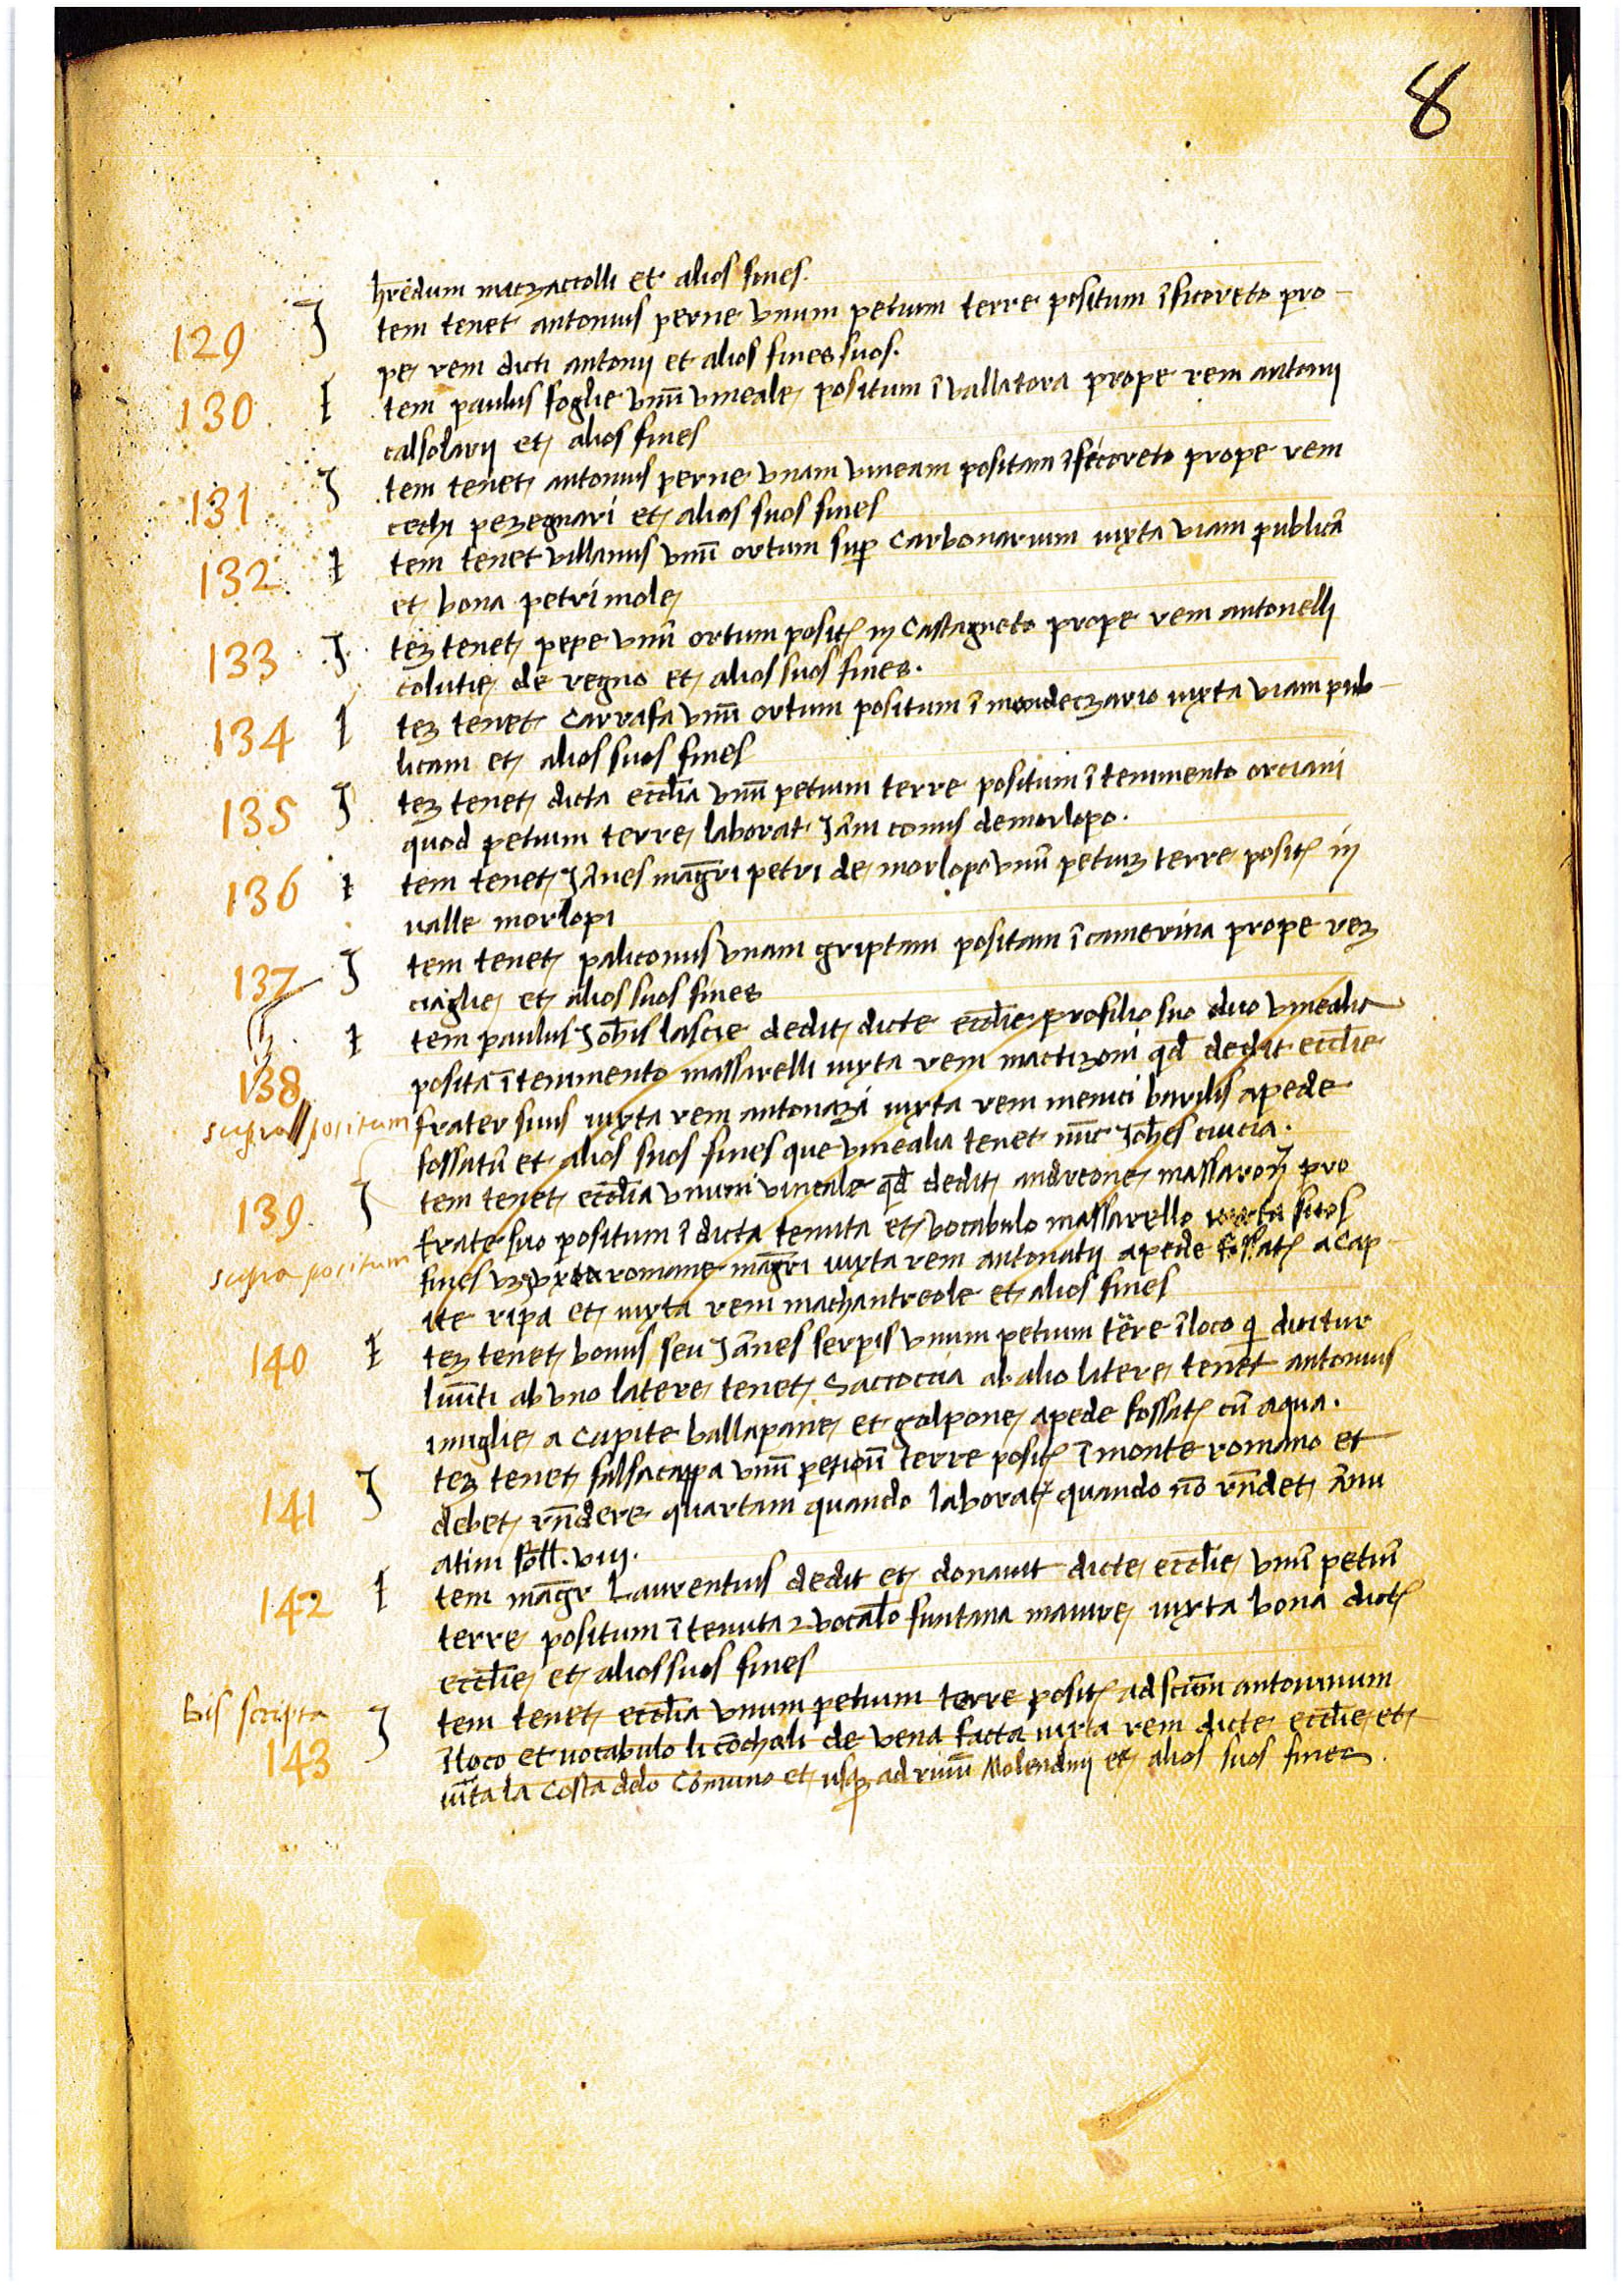 8
hredum maczaccolli et alios fines.
129 Item tenet antonius perne vnum petium terre positum ī ficoreto pro-
pe rem dicti antonij et alios fines suos.
130 Item paulus foglie vnū vineale positum ī vallatora prope rem antonij
calsolarij et alios fines
131 Item tenet antonius perne vnam vineam positam ī ficoreto prope rem
cechi pezegnari et alios suos fines
132 Item tenet villanus vnū ortum sup carbonarium iuxta viam publicā
et bona petri mole
133 Itez tenet pepe vnū ortum posit in Castagneto prope rem antonelli
colutie de regno et alios suos fines.
134 Itez tenet Carrafa vnū ortum positum ī mondeczario iuxta viam pub-
licam et alios suos fines
135 Itez tenet dicta eccl̄ia vnū petium terre positum ī tenimento orciani
quod petium terre laborat Jān conus de morlopo.
136 Item tenet Jānes mag̅ri petri de morlopo vnū petiuz terre posit in
ualle morlopi
137 Item tenet paliconus vnam griptam positam ī camerina prope rez
ciaglie et alios suos fines
138 Item paulus Joh̄is lascie dedit dicte eccl̄ie pro filio suo duo vinealia
posita ī tenimento massarelli iuxta rem mactizoni qd̄ dedit eccl̄ie
supra positum frater suus iuxta rem antonazi iuxta rem menici barilis apede
fossatū et alios suos fines que vinealia tenet nūc Joh̄es ciucia.
139 Item tenet eccl̄ia vnum vineale qd̄ dedit andreone massaron pro
frate suo positum ī dicta tenuta et vocabulo massarello iuxta suos
supra positum fines vz iuxta romane mag̅ri iuxta rem antonatij apede fossat a cap-
ite ripa et iuxta rem machantreole et alios fines
140 Itez tenet bonus seu Jānes serpis vnum petium terre ī loco q dicitur
liuīti ab vno latere tenet Saccoccia ab alio latere tenet antonius
iniglie a capite ballapane et golpone apede fossat cū aqua.
141 Itez tenet salsacappa vnū petiolū terre posit ī monte romano et
debet rn̄dere quartam quando laborat quando nō rn̄det ānu
atim soll. viij.
142 Item mag̅r Laurentius dedit et donauit dicte eccl̄ie vnū petiū
terre positum ī tenuta 2 vocalo funtana maiure iuxta bona dict
eccl̄ie et alios suos fines
Bis scripta
143 Item tenet eccl̄ia vnum petium terre posit ad scūm antoninum
ī loco et uocabulo li cōchali de vena facta iuxta rem dicte eccl̄ie et
iuīta la costa delo Cōmuno et usq ad riuū Molendinj et alios suos fines.